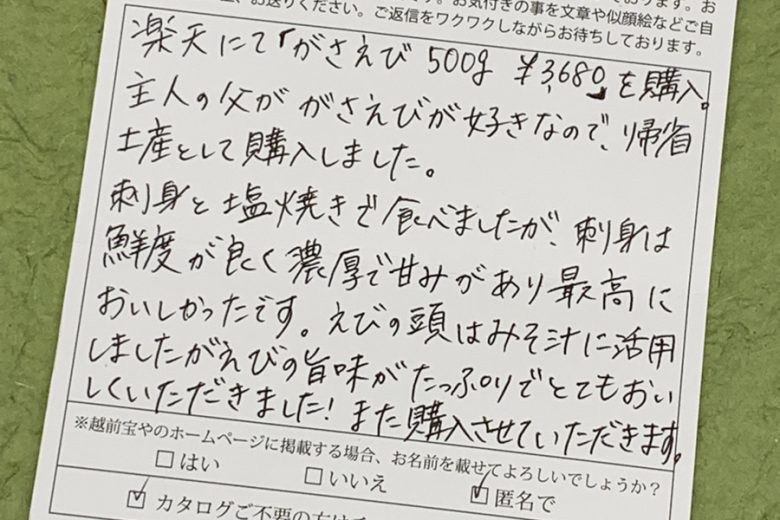 お気付きの事を文章や似顔絵などご自
お送りください。ご返信をワクワクしながらお待ちしております。
楽天にて「がさえび 500g ¥3,680」を購入。
主人の父が がさえびが好きなので、帰省
土産として購入しました。
刺身と塩焼きで食べましたが、刺身は
鮮度が良く濃厚で甘みがあり最高に
おいしかったです。えびの頭はみそ汁に活用
しましたがえびの旨味がたっぷりでとてもおい
しくいただきました!また購入させていただきます。
※越前宝やのホームページに掲載する場合、お名前を載せてよろしいでしょうか?
□はい □いいえ ☑匿名で
☑カタログご不要の方は